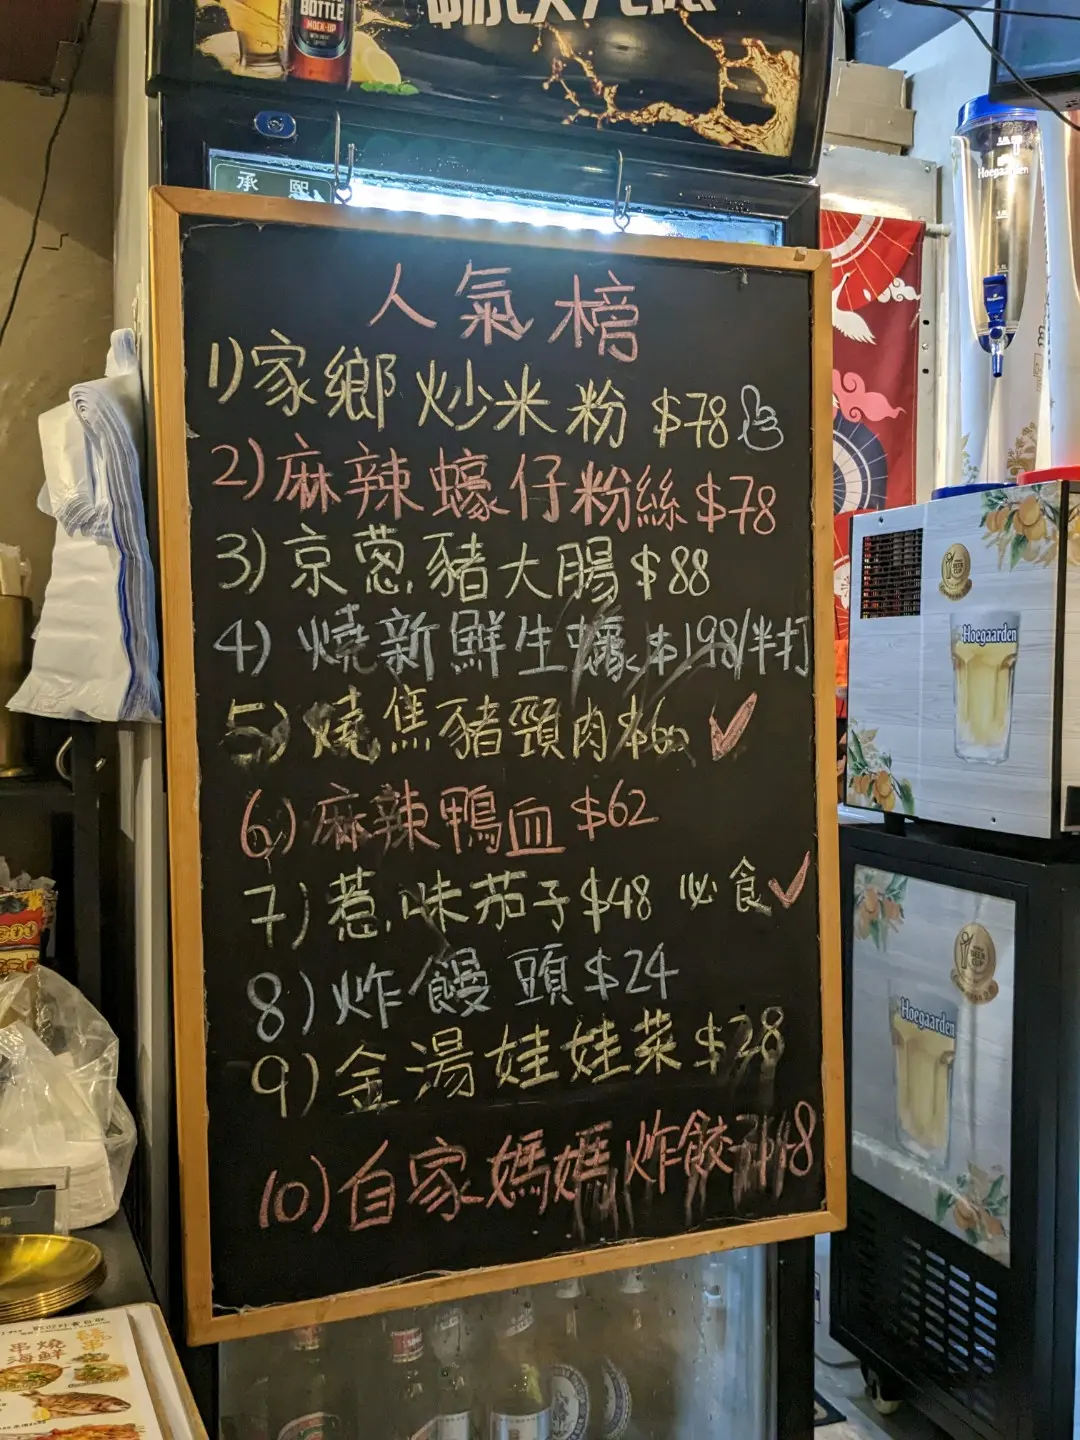 BOTTLE
MOCK-UP
承 熙
Hoegaarden
人氣榜
1) 家鄉炒米粉 $78
2) 麻辣蠔仔粉絲 $78
3) 京蔥豬大腸 $88
4) 燒新鮮生蠔 $198/半打
5) 燒焦豬頸肉 $60
6) 麻辣鴨血 $62
7) 惹味茄子 $48 必食
8) 炸饅頭 $24
9) 金湯娃娃菜 $28
10) 自家媽媽炸餃子 $48
Hoegaarden
Hoegaarden
串燒
海鮮